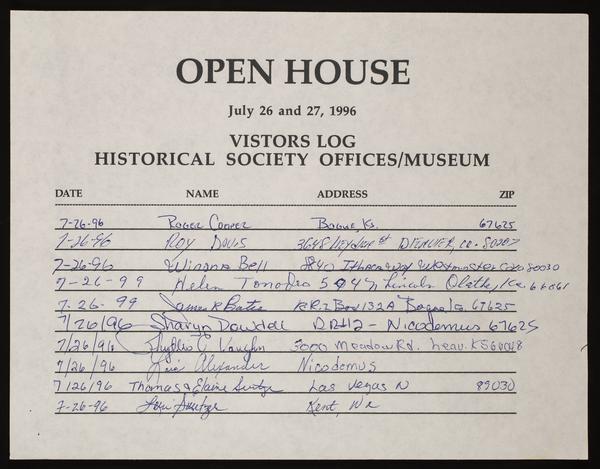 OPEN HOUSE
July 26 and 27, 1996
VISTORS LOG
HISTORICAL SOCIETY OFFICES/MUSEUM
DATE NAME ADDRESS ZIP
7-26-96 Roger Cooper Bogue, Ks. 67625
7-26-96 Roy Davis 3648 St DENVER, CO. 80207
7-26-96 Winona Bell 8840 Ithaca way Westminster Colo 80030
7-26-99 Helen 547 Lincoln Olathe, Ks. 66061
7-26-99 James R Bates R.R.2 Box 132A Bogue Ks. 67625
7/26/96 Sharyn Dowdell RR#2 - Nicodemus 67625
7/26/96 Phyllis C. Vaughn 3000 Meadow Rd. Leav. KS 66048
7/26/96 Alexander Nicodemus
7/26/96 Thomas & Elaine Las Vegas N 89030
7-26-96 Kent, Wa